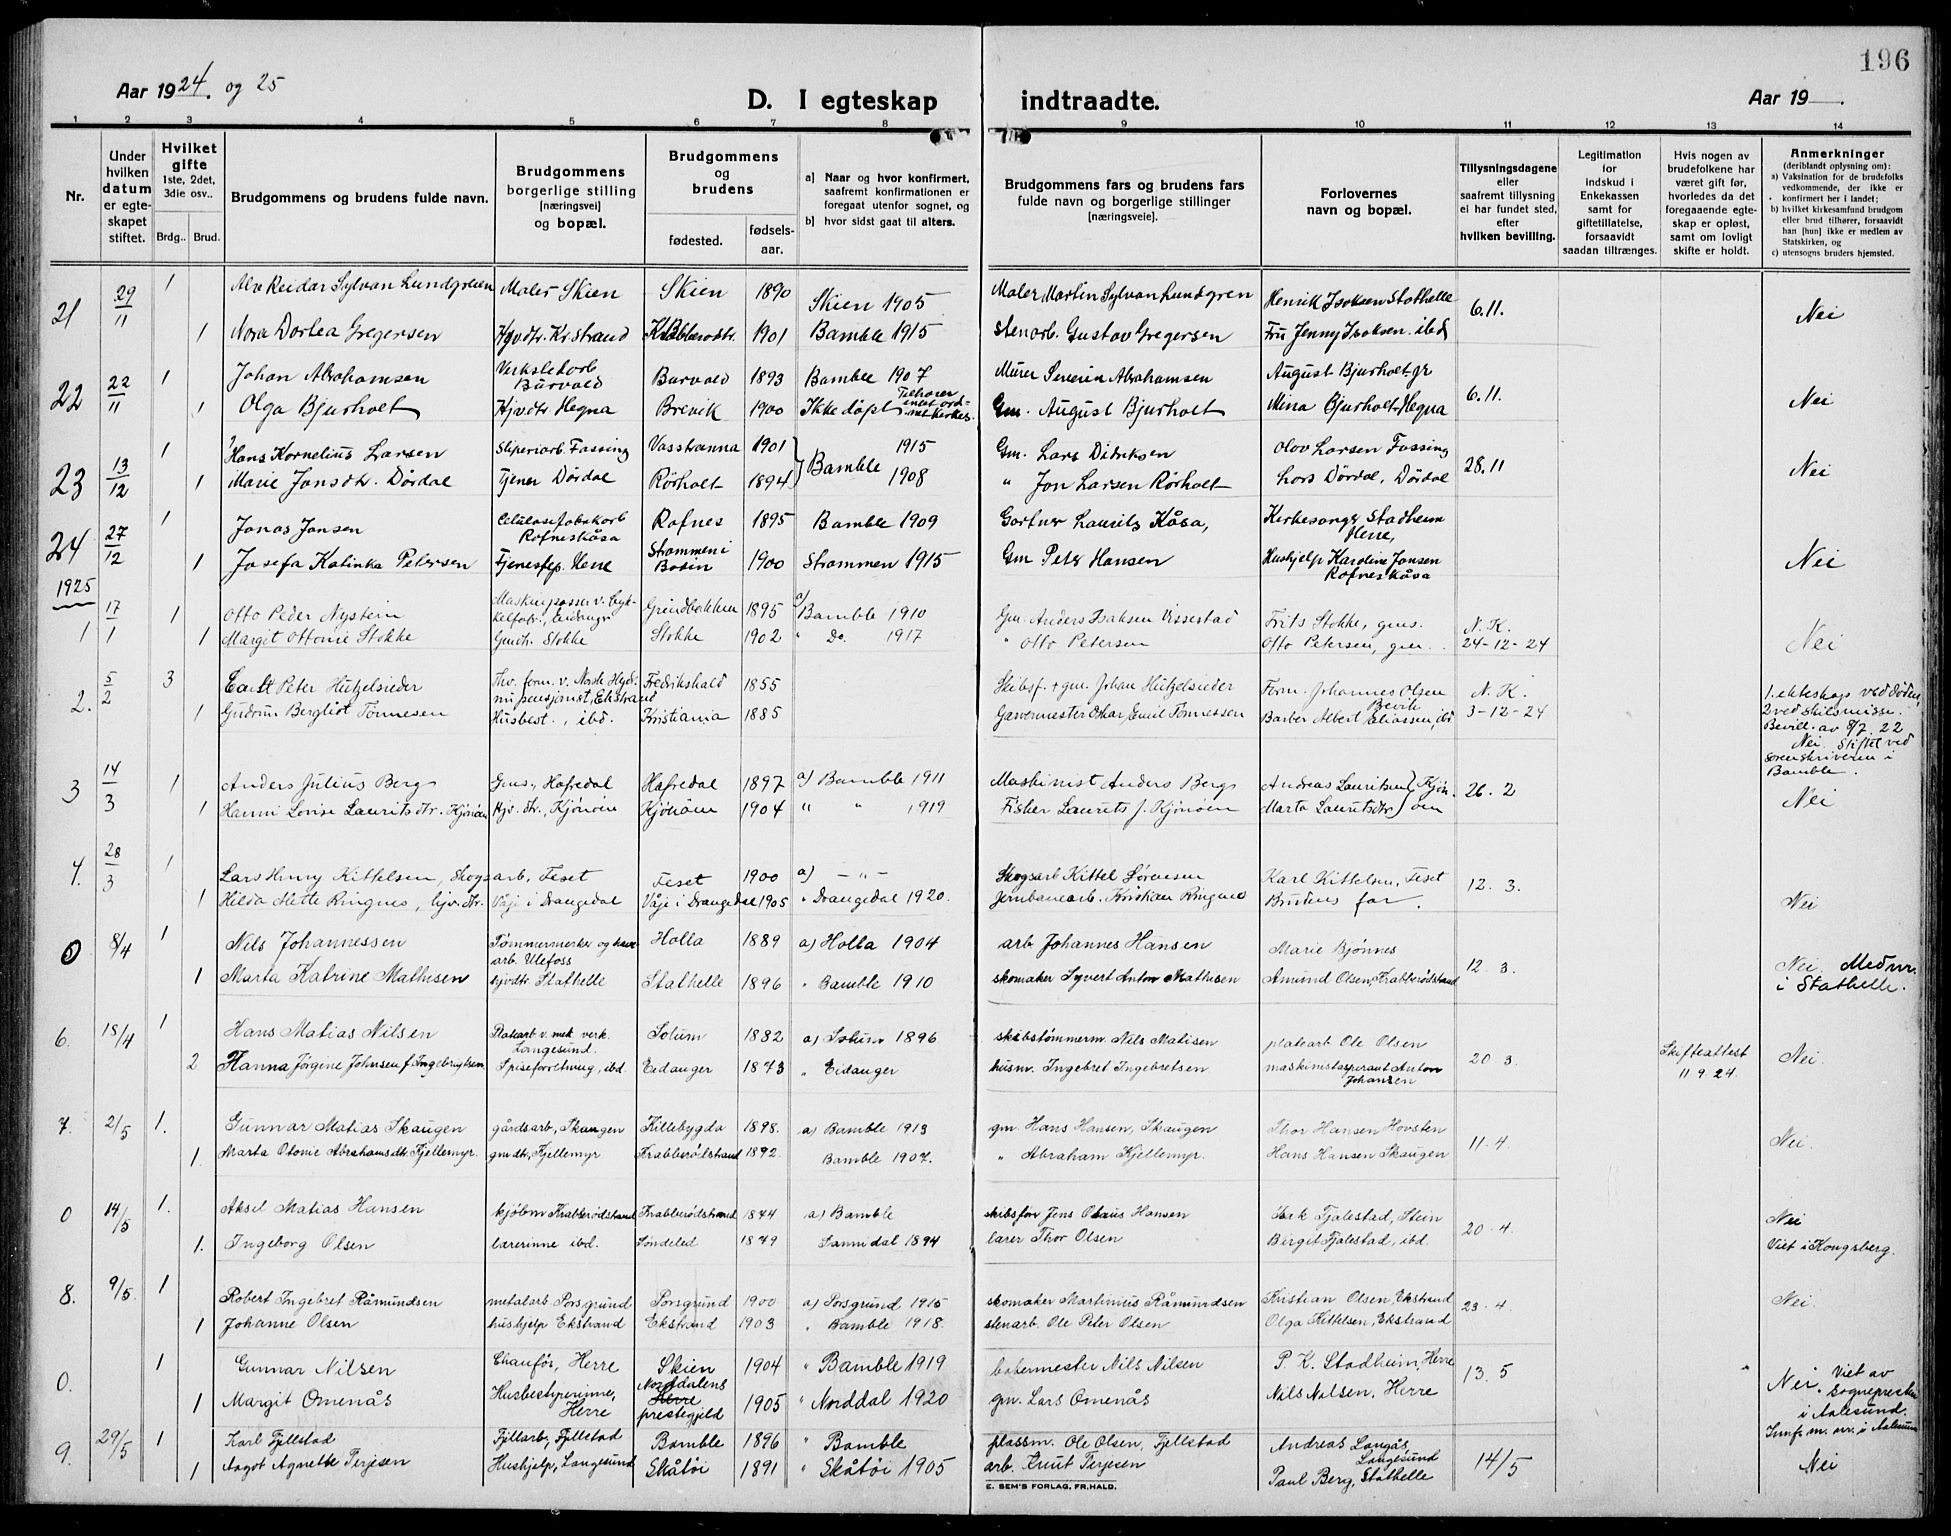 196
Aar 1924. og 25
D. I egteskap indtraadte.
Aar 19 .
1 2 3 4 5 6 7 8 9 10 11 12 13 14
Nr.
Under hvilken datum er egteskapet stiftet.
Hvilket gifte 1ste, 2det, 3die osv..
Brdg.. Brud.
Brudgommens og brudens fulde navn.
Brudgommens borgerlige stilling [næringsvei] og bopæl.
Brudgommens og brudens
fødested. fødsels-aar.
a) Naar og hvor konfirmert, saafremt konfirmationen er foregaat utenfor sognet, og
b) hvor sidst gaat til alters.
Brudgommens fars og brudens fars fulde navn og borgerlige stillinger [næringsveie].
Forlovernes navn og bopæl.
Tillysningsdagene eller saafremt tillysning ei har fundet sted, efter hvilken bevilling.
Legitimation for indskud i Enkekassen samt for giftetillatelse, forsaavidt saadan tiltrænges.
Hvis nogen av brudefolkene har været gift før, hvorledes da det foregaaende egteskap er opløst, samt om lovligt skifte er holdt.
Anmerkninger (deriblandt oplysning om):
a) Vaksination for de brudefolks vedkommende, der ikke er konfirmert her i landet;
b) hvilket kirkesamfund brudgom eller brud tilhører, forsaavidt han [hun] ikke er medlem av Statskirken, og
c) utensogns bruders hjemsted.
21 29/11 1 Alv Reidar Sylvan Lundgreen Maler Skien Skien 1890 Skien 1905 Maler Martin Sylvan Lundgren Henrik Isaksen Stathelle 6.11. Nei
1 Nora Dortea Gregersen Hjv.dtr. Kr.strand 1901 Bamble 1915 Stenarb. Gustav Gregersen Fru Jenny Isaksen ibd
22 22/11 1 Johan Abrahamsen Burvald Burvald 1893 Bamble 1907 Murer Severin Abrahamsen August Bjurholt jr 6.11. Nei
1 Olga Bjurholt Hjv.dtr Hegna Brevik 1900 Ikke døpt Gm. August Bjurholt Mina Bjurholt Hegna
23 13/12 1 Hans Kornelius Larsen Sliperiarb. Fossing Vasstranna 1901 Bamble 1915 Gm. Lars Didriksen Olov Larsen Fossing 28.11 Nei
1 Marie Jonsdtr. Dørdal Tjener Dørdal Rørholt 1894 1908 " Jon Larsen Rørholt Lars Dørdal, Dørdal
24 27/12 1 Jonas Jansen Celulosefabrikarb Rofneskåsa Rofnes 1895 Bamble 1909 Gartner Laurits Kåsa, Kirkesanger Stadheim Herre, Nei
1 Josefa Katinka Petersen Tjenestep. Herre Strømmen i Bodin 1900 Strømmen 1915 Gm Peter Hansen Hushjelp Karoline Jansen Rofneskåsa
1925
1 17/1 1 Otto Peder Nystein Grindbakken 1895 a) Bamble 1910 Gm. Anders Isaksen Vissestad Frits Stokke, gms. N. K. Nei
1 Margit Ottonie Stokke Gmdtr. Stokke Stokke 1902 " Do. 1917 " Otto Petersen Otto Petersen, gm. 24-12-24
2. 5/2 3 Carl Peter Hützelsieder Fredrikshald 1855 Skibsf. + gm. Johan Hützelsieder Form. Johannes Olsen Brevik N. K.
1 Gudrun Bergliot Tønnesen Husbest., ibd. Kristiania 1885 Garvermester Oskar Emil Tønnessen Barber Albert Eliassen, ibd 3-12-24
1. ekteskap ved døden, 2 ved skilsmisse. Bevill. av 8/7. 22
Nei. Stiftet ved sorenskriveren i Bamble.
3 14/3 1 Anders Julius Berg Gms., Hafredal Hafredal 1897 a) Bamble 1911 Maskinist Anders Berg Andreas Lauritsen Kjønøen 26. 2 Nei
1 Hanni Lovise Lauritsdtr. Kjønøen Hjv. dtr., Kjönöen Kjönöen 1904 " " 1919 Fisker Laurits J. Kjönöen Marta Lauritsdtr
4. 28/3 1 Lars Henry Kittelsen, skogsarb, Feset Feset 1900 a) - " - Skogsarb Kittel Sørensen Karl Kittelsen, Feset 12. 3. Nei
1 Hilda Mette Ringnes, hjv.dtr. Våje i Drangedal Våje i Drangedal 1905 " Drangedal 1920. Jernbanearb. Kristian Ringnes Brudens far.
5 8/4 1 Nils Johannessen Tømmermerker og havearb. Ulefoss Holla 1889 a) Holla 1904 arb Johannes Hansen Marie Bjønnes 12. 3. Nei. Med nr. i Stathelle.
1 Marta Katrine Mathisen hjvdtr. Stathelle Stathelle 1896 " Bamble 1910 skomaker Syvert Anton Mathisen Amund Olsen, Krabberødstrand
6. 18/4 1 Hans Matias Nilsen Platearb v. mek. verk. Langesund. Solum 1882 a) Solum 1896 skibstømmerm. Nils Matisen platearb Ole Olsen 20 3. Skifteattest 11.9.24. Nei.
2 Hanna Jörgine Johnsen f. Ingebrigtsen Spiseforretning, ibd. Eidanger 1873 " Eidanger husm. Ingebret Ingebretsen maskinistaspirant Anton Johansen
7. 2/5 1. Gunnar Matias Skaugen gårdsarb, Skaugen Killebygda 1898. a) Bamble 1913 gm. Hans Hansen, Skaugen Thor Hansen Hovsten 11. 4. Nei.
1. Marta Otonie Abrahamsdtr Kjellemyr. gmdtr, Kjellemyr Krabberødstrand 1892 Bamble 1907. " Abraham Kjellemyr. Hans Hansen Skaugen
0 14/5 1. Aksel Matias Hansen kjøbm Krabberødstrand Krabberødstrand 1877 a) Bamble skibsfør Jens Olaus Hansen Fjalestad, Stein 20. 4. Nei
1. Ingeborg Olsen lærerinne ibd. Søndeled 1879 Sannidal 1894 lærer Thor Olsen Birgit Fjalestad, ibd. Viet i Kongsberg.
8. 9/5. 1 Robert Ingebret Råmundsen metalarb Porsgrund Porsgrund 1900 a) Porsgrund 1915 skomaker Martinius Råmundsen Kristian Olsen, Ekstrand 23. 4. Nei.
1 Johanne Olsen hushjelp Ekstrand Ekstrand 1903 " Bamble 1918. stenarb. Ole Peter Olsen Olga Kittelsen, Ekstrand
0. 1 Gunnar Nilsen Chauffør, Herre Skien 1904 " Bamble 1919 bakermester Nils Nilsen P. K. Stadheim, Herre 13. 5 Nei. Viet av sogneprest i Aalesund.
1 Margit Omenås Husbestyrerinne, Herre Norddalens prestegjeld 1905 " Norddal 1920 gm. Lars Omenås Nils Nilsen, Herre
9. 29/5 1 Karl Fjellstad Fjellarb, Fjellstad Bamble 1896 " Bamble plassm. Ole Olsen, Fjellstad Andreas Langås, Langesund 14/5 Nei
1 Aagot Agnette Terjesen Hushjelp, Langesund Skåtøi 1891 " Skåtøi 1905 arb. Knut Terjesen Paul Berg, Stathelle
E. SEM'S FORLAG, FR.HALD.